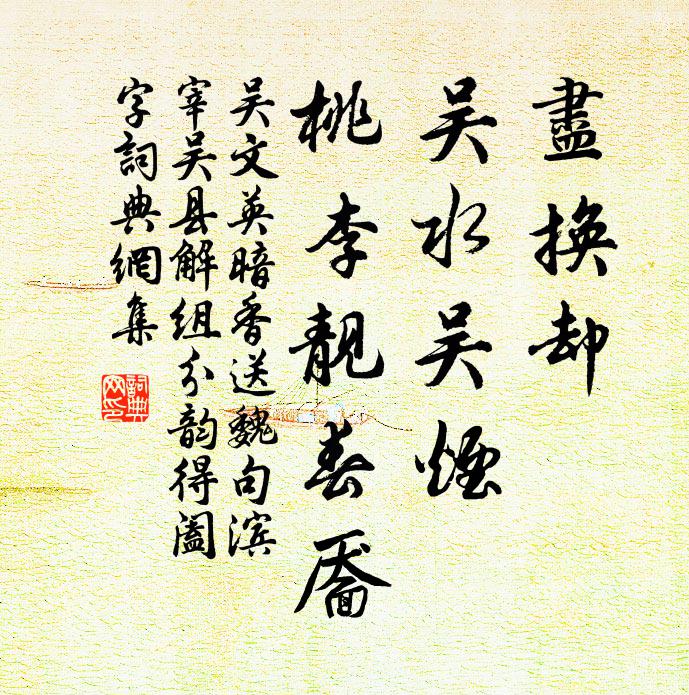 盡換却
吳水吳煙
桃李靚春靨
吴文英暗香送魏句滨
宰吴县解组分韵得阖
字詞典網集
詞典
网印